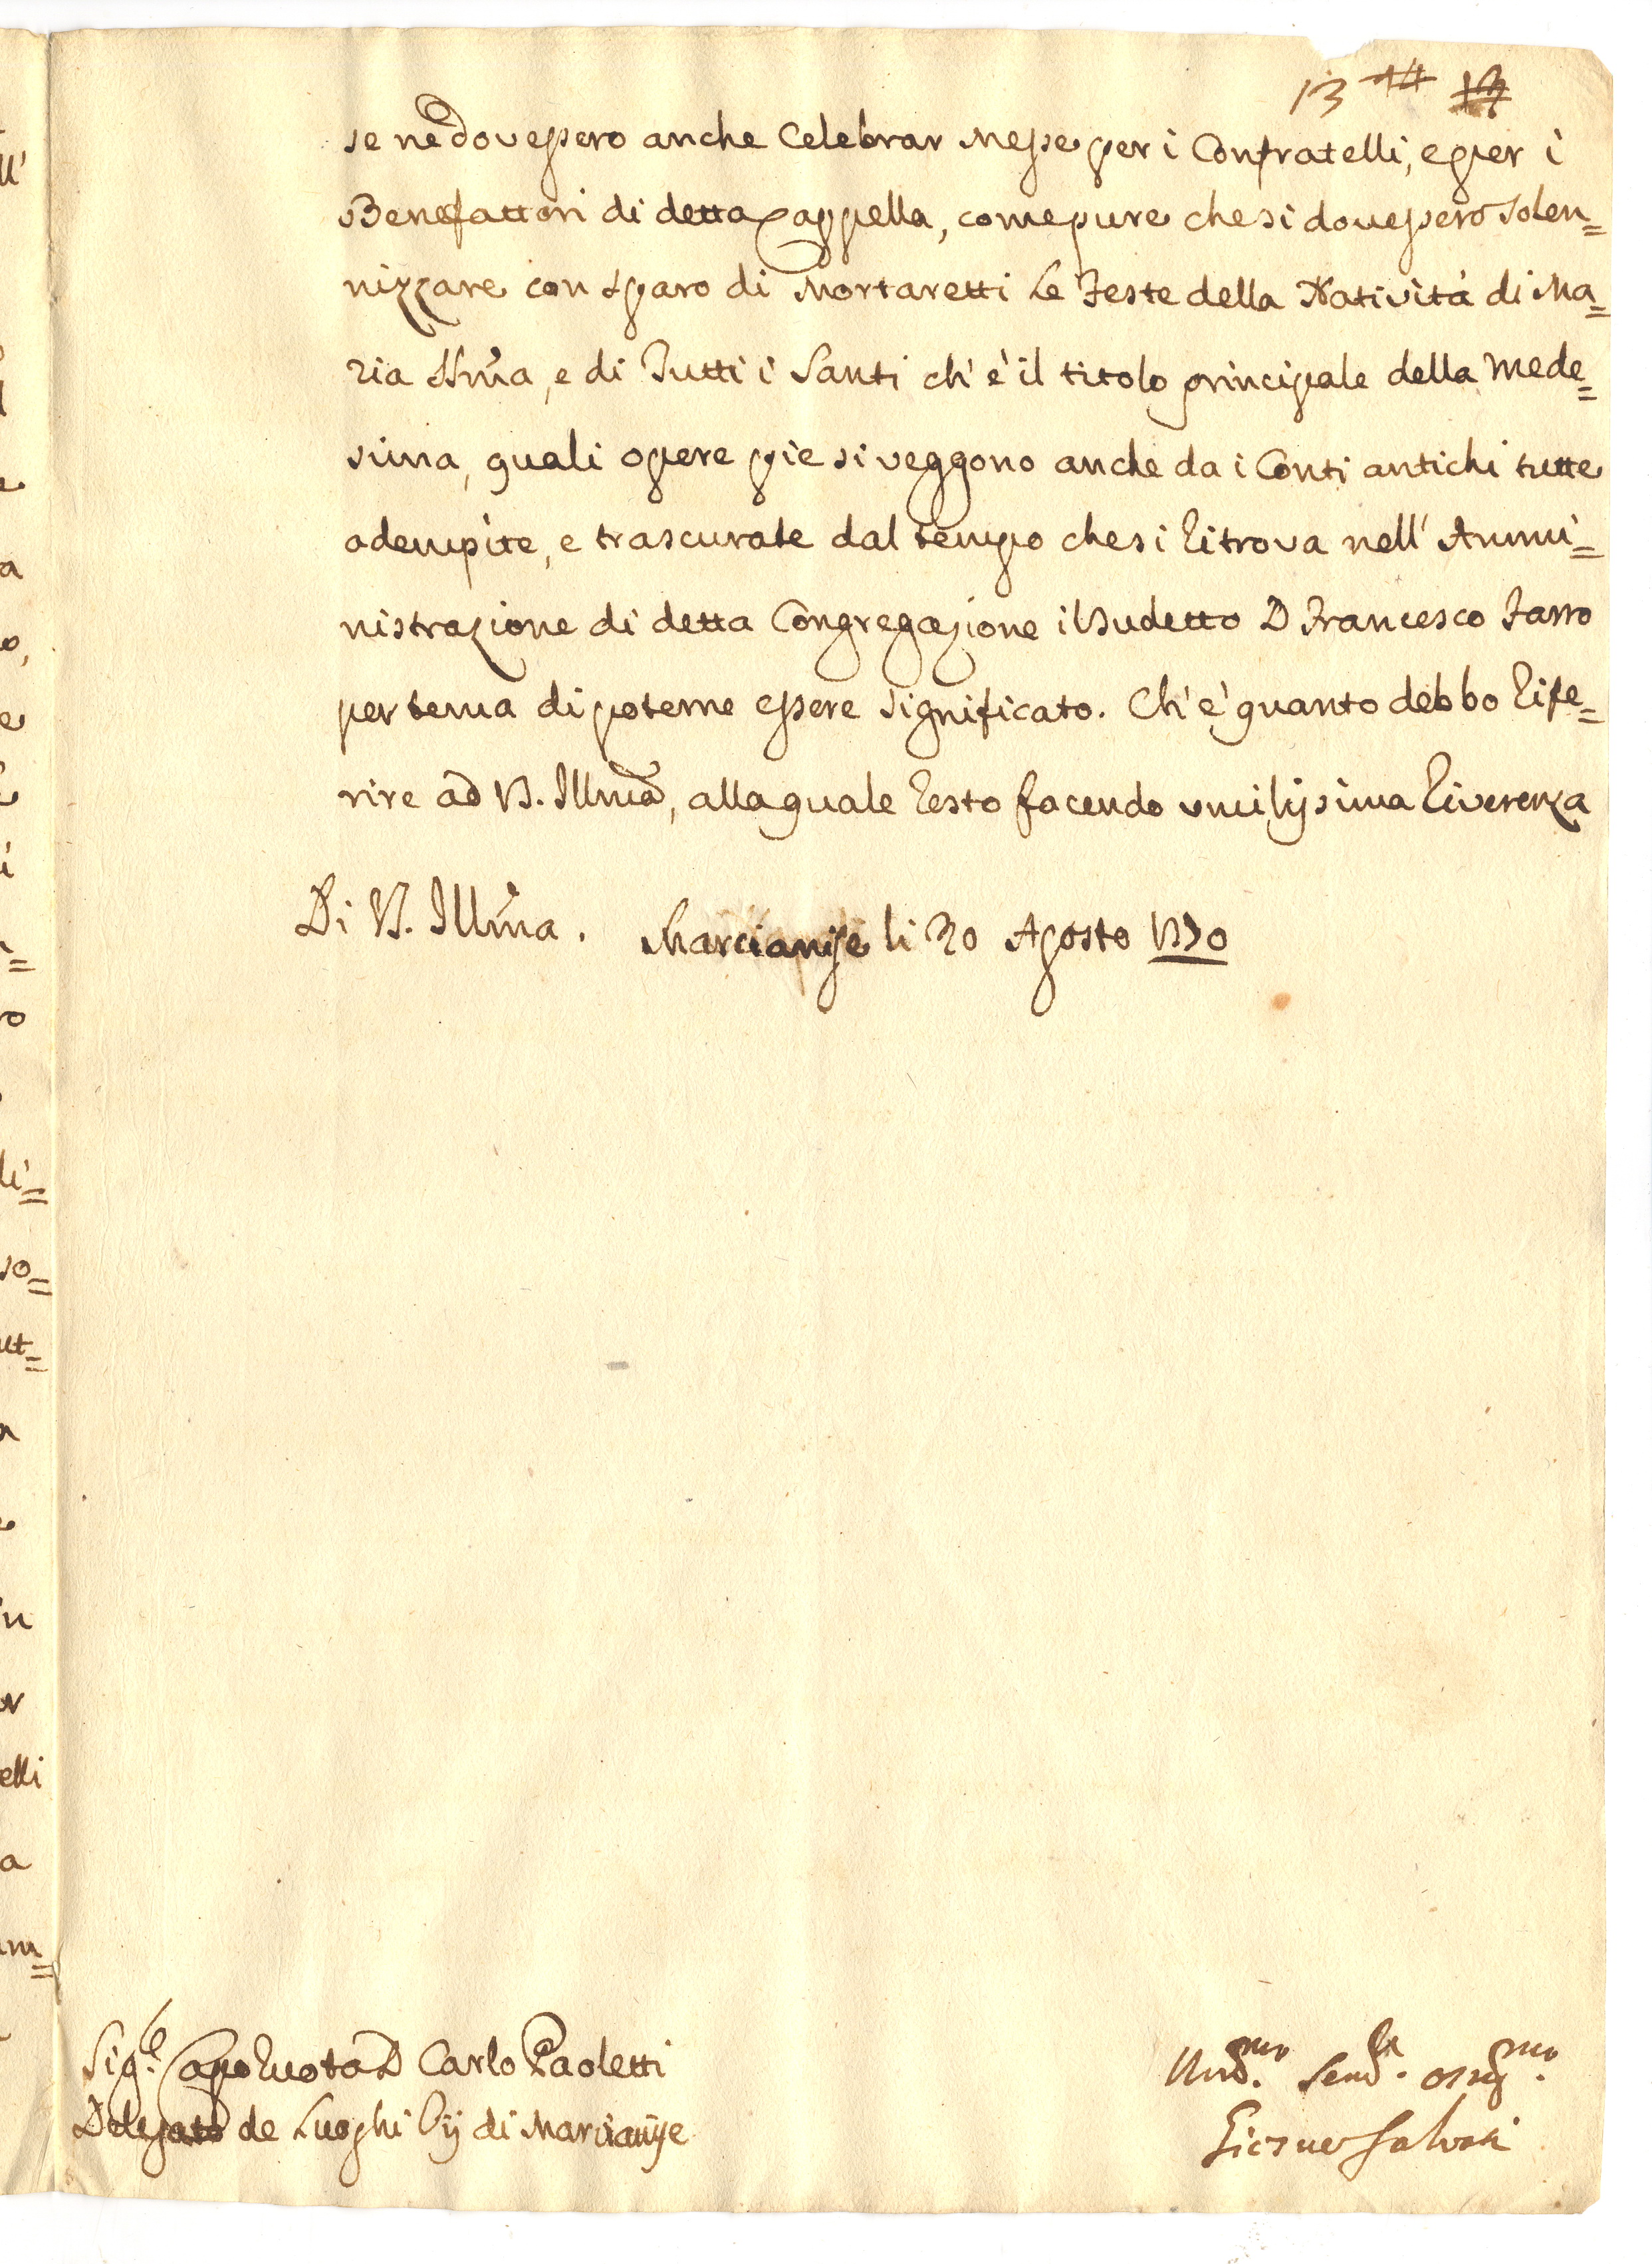 13 14 12
se ne dovessero anche Celebrar Messe per i Confratelli, e per i
Benefattori di detta Cappella, come pure che si dovessero solen=
nizzare con sparo di Mortaretti le Feste della Natività di Ma=
ria SSma, e di Tutti i Santi ch'è il titolo principale della Mede=
sima, quali opere pie si veggono anche da i Conti antichi tutte
adempite, e trascurate dal tempo che si ritrova nell' Ammi=
nistrazione di detta Congregazione il sudetto D Francesco
per tema di poterne essere significato. Ch'è quanto debbo rife=
rire ad V.S. Illma, alla quale resto facendo umilissima riverenza
Di V.S. Illma. Marcianise li 20 Agosto
Sig.e Capo Ruota D Carlo Paoletti
Delegato de Luoghi Pij di Marcianise